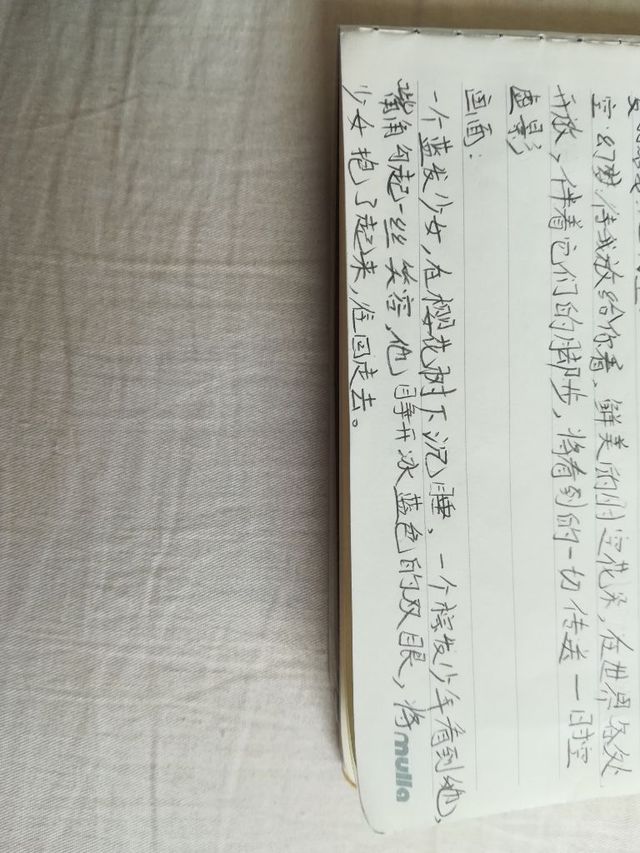 空:幻梦待我放给你看,鲜美的时空花朵,在世界各处
开放,伴着它们的脚步,将看到的一切传送—时空
虚影
画面:
一个蓝发少女,在樱花树下沉睡,一个棕发少年看到她,
嘴角勾起一丝笑容,他睁开冰蓝色的双眼,将
少女抱了起来,往回走去。
mulla